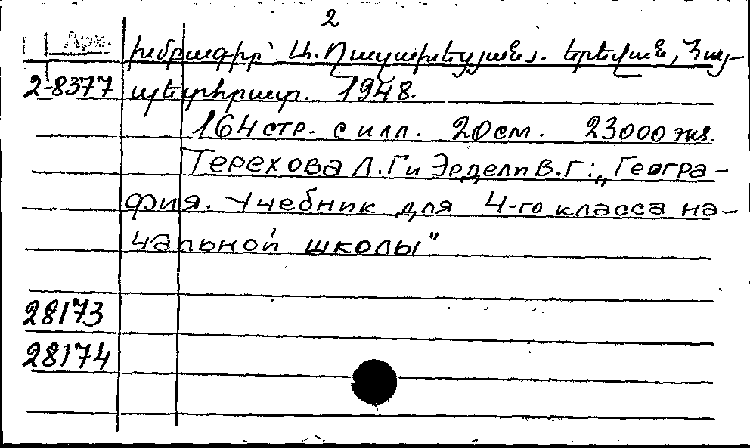 2
Арх. խմբագիր՝ Ա. Պապախեչյանս. Երեվան, Հայ-
2-8377 պետհրատ. 1948.
164 стр. с илл. 20см. 23000 экз.
Терехова Л.Г и Эрдели В.Г: „Геогра-
фия. Учебник для 4-го класса на-
чальной школы"
28173
28174